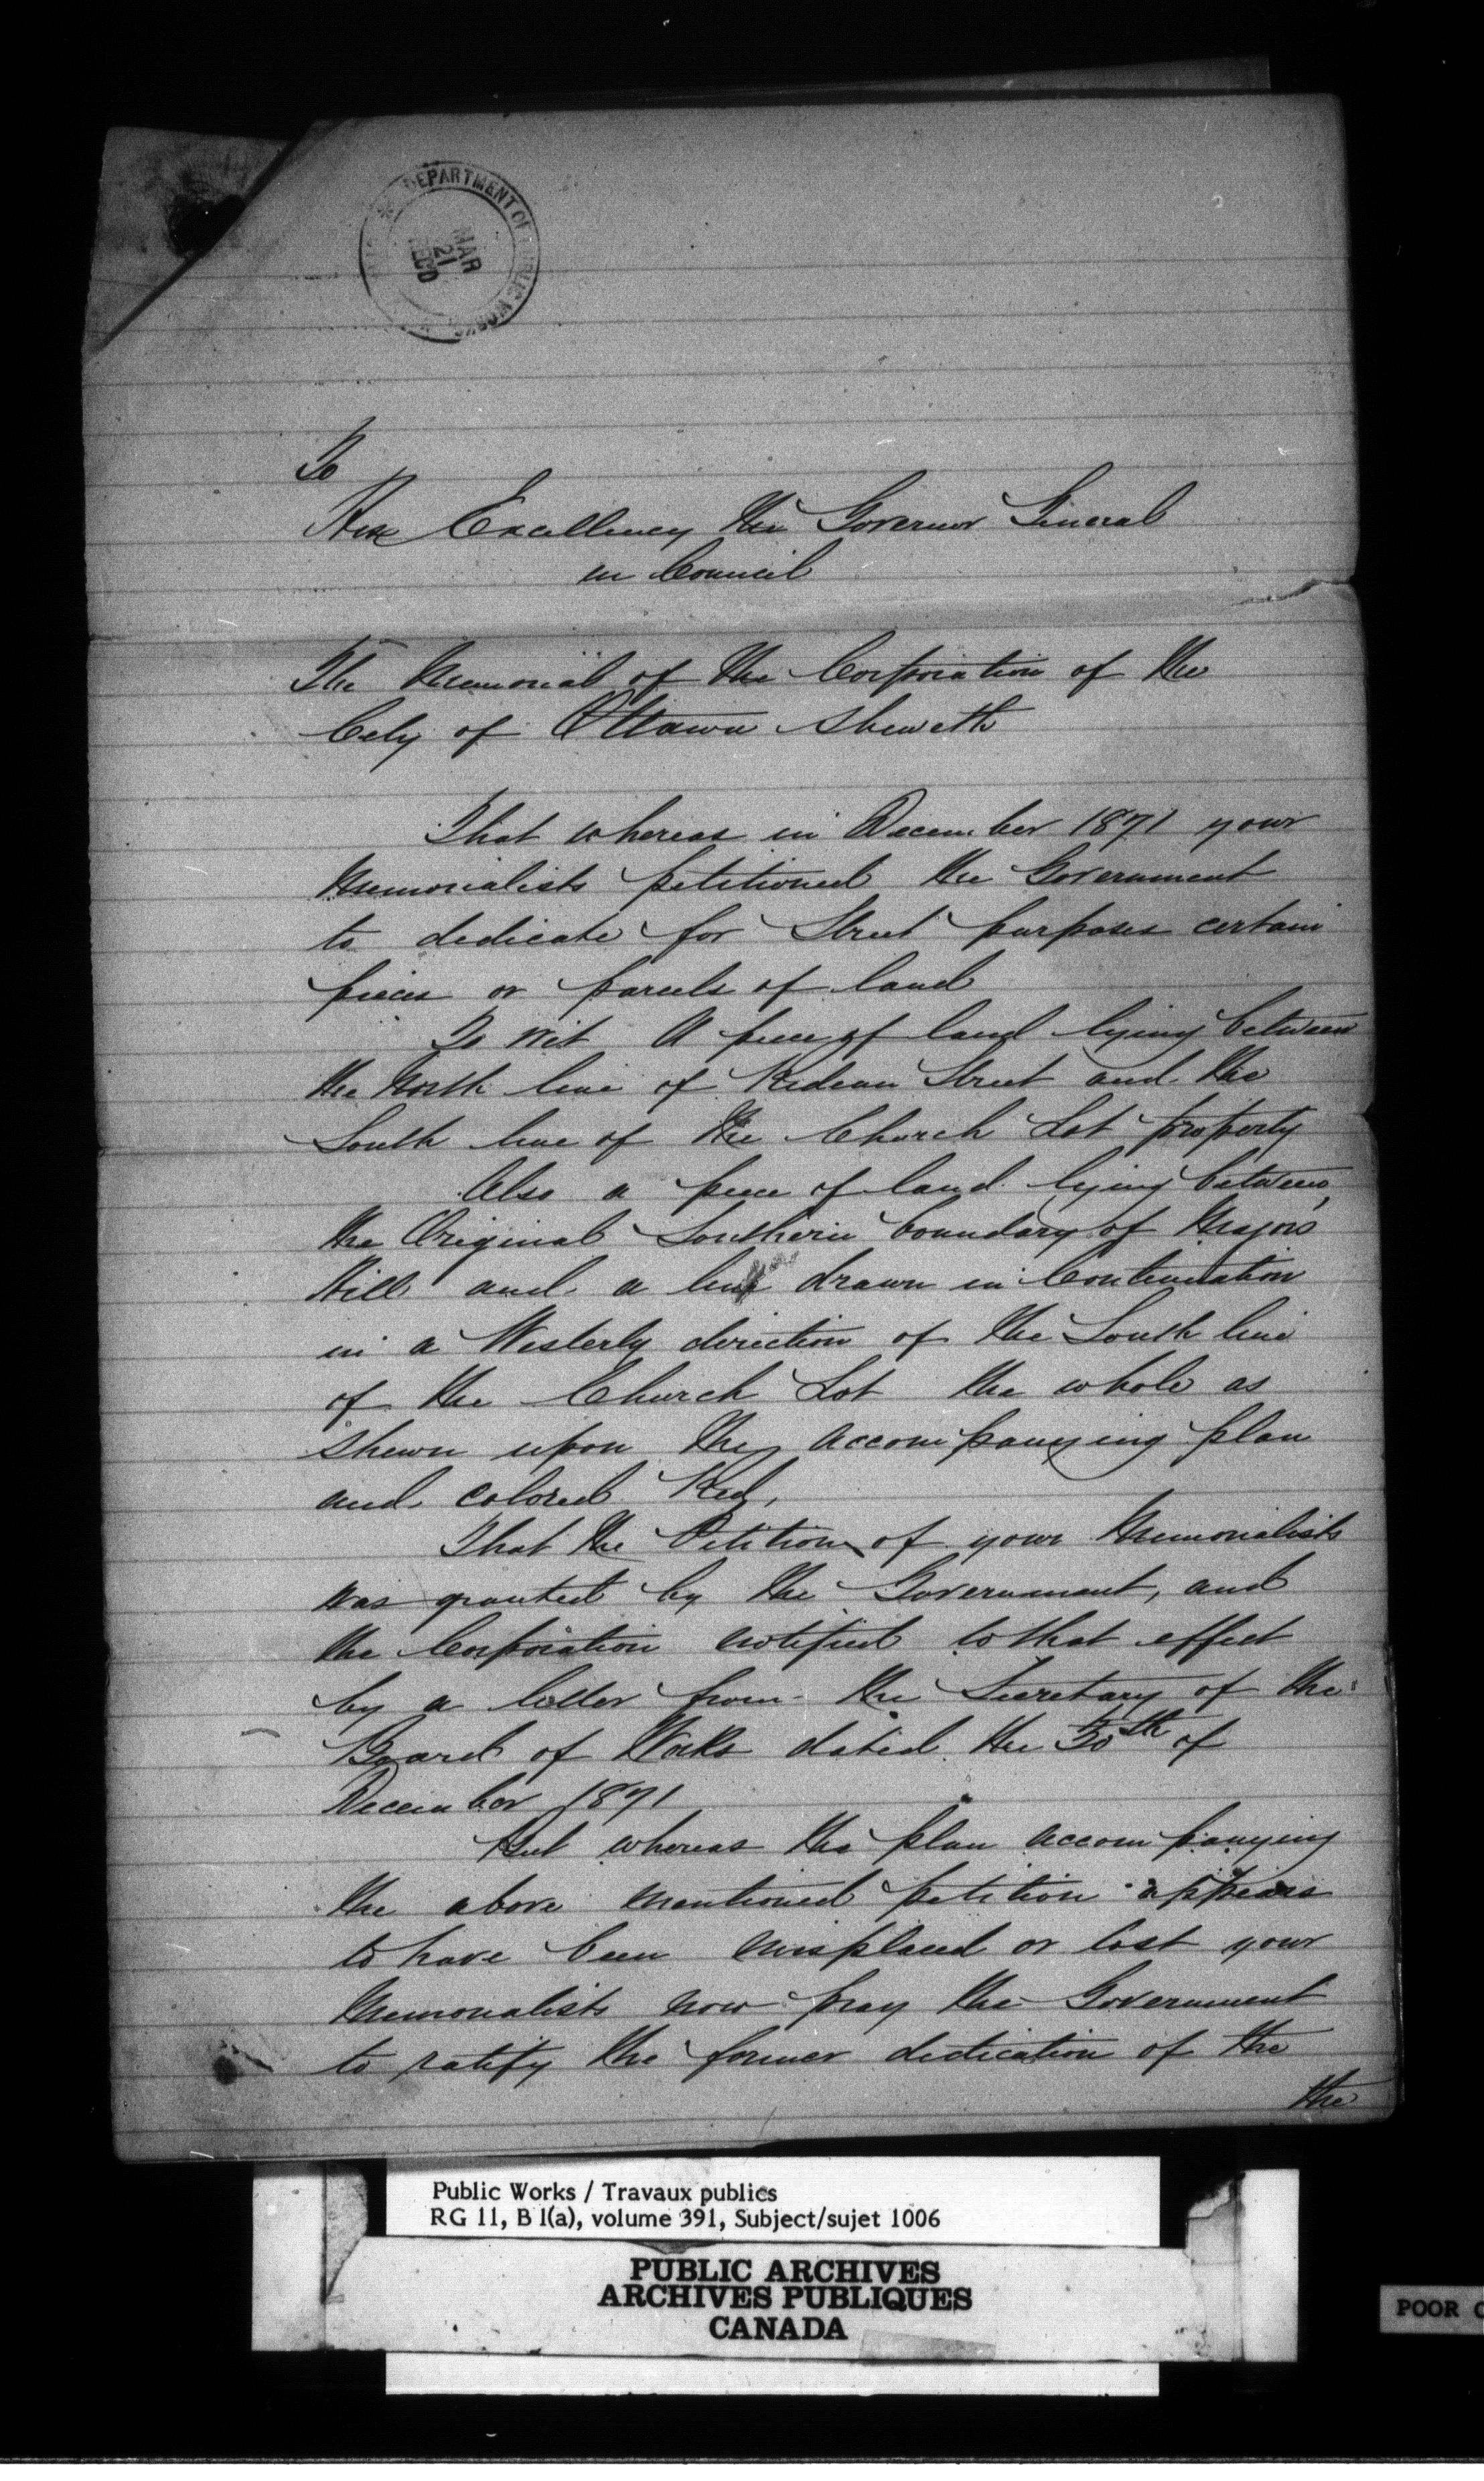 DEPARTMENT OF PUBLIC WORKS
MAR
21
REC'D
To
His Excellency the Governor General
in Council
The Memorial of the Corporation of the
City of Ottawa Sheweth
That whereas in December 1871 your
Memorialists petitioned the Government
to dedicate for Street purposes certain
pieces or parcels of land
To wit A piece of land lying between
the North line of Rideau Street and the
South line of the Church Lot property
Also a piece of land lying between
the Original Southern boundary of Majors
Hill and a line drawn in Continuation
in a Westerly direction of the South line
of the Church Lot the whole as
shewn upon the accompanying plan
and colored Red,
That the Petition of your Memorialists
was granted by the Government, and
the Corporation notified to that effect
by a letter from the Secretary of the
Board of Works dated the 30th of
December 1871
But whereas the plan accompanying
the above mentioned petition appears
to have been misplaced or lost your
Memorialists now pray the Government
to ratify the former dedication of the
the
Public Works / Travaux publics
RG 11, B 1(a), volume 391, Subject/sujet 1006
PUBLIC ARCHIVES
ARCHIVES PUBLIQUES
CANADA
POOR